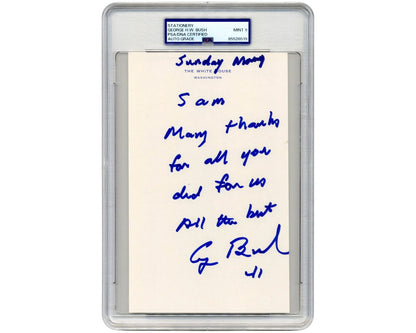 STATIONERY
GEORGE H.W. BUSH
PSA/DNA CERTIFIED
AUTO GRADE
MINT 9
Sunday Morng
THE WHITE HOUSE
WASHINGTON
Sam
Many thanks
for all you
did for us
All the best
G Bush
41